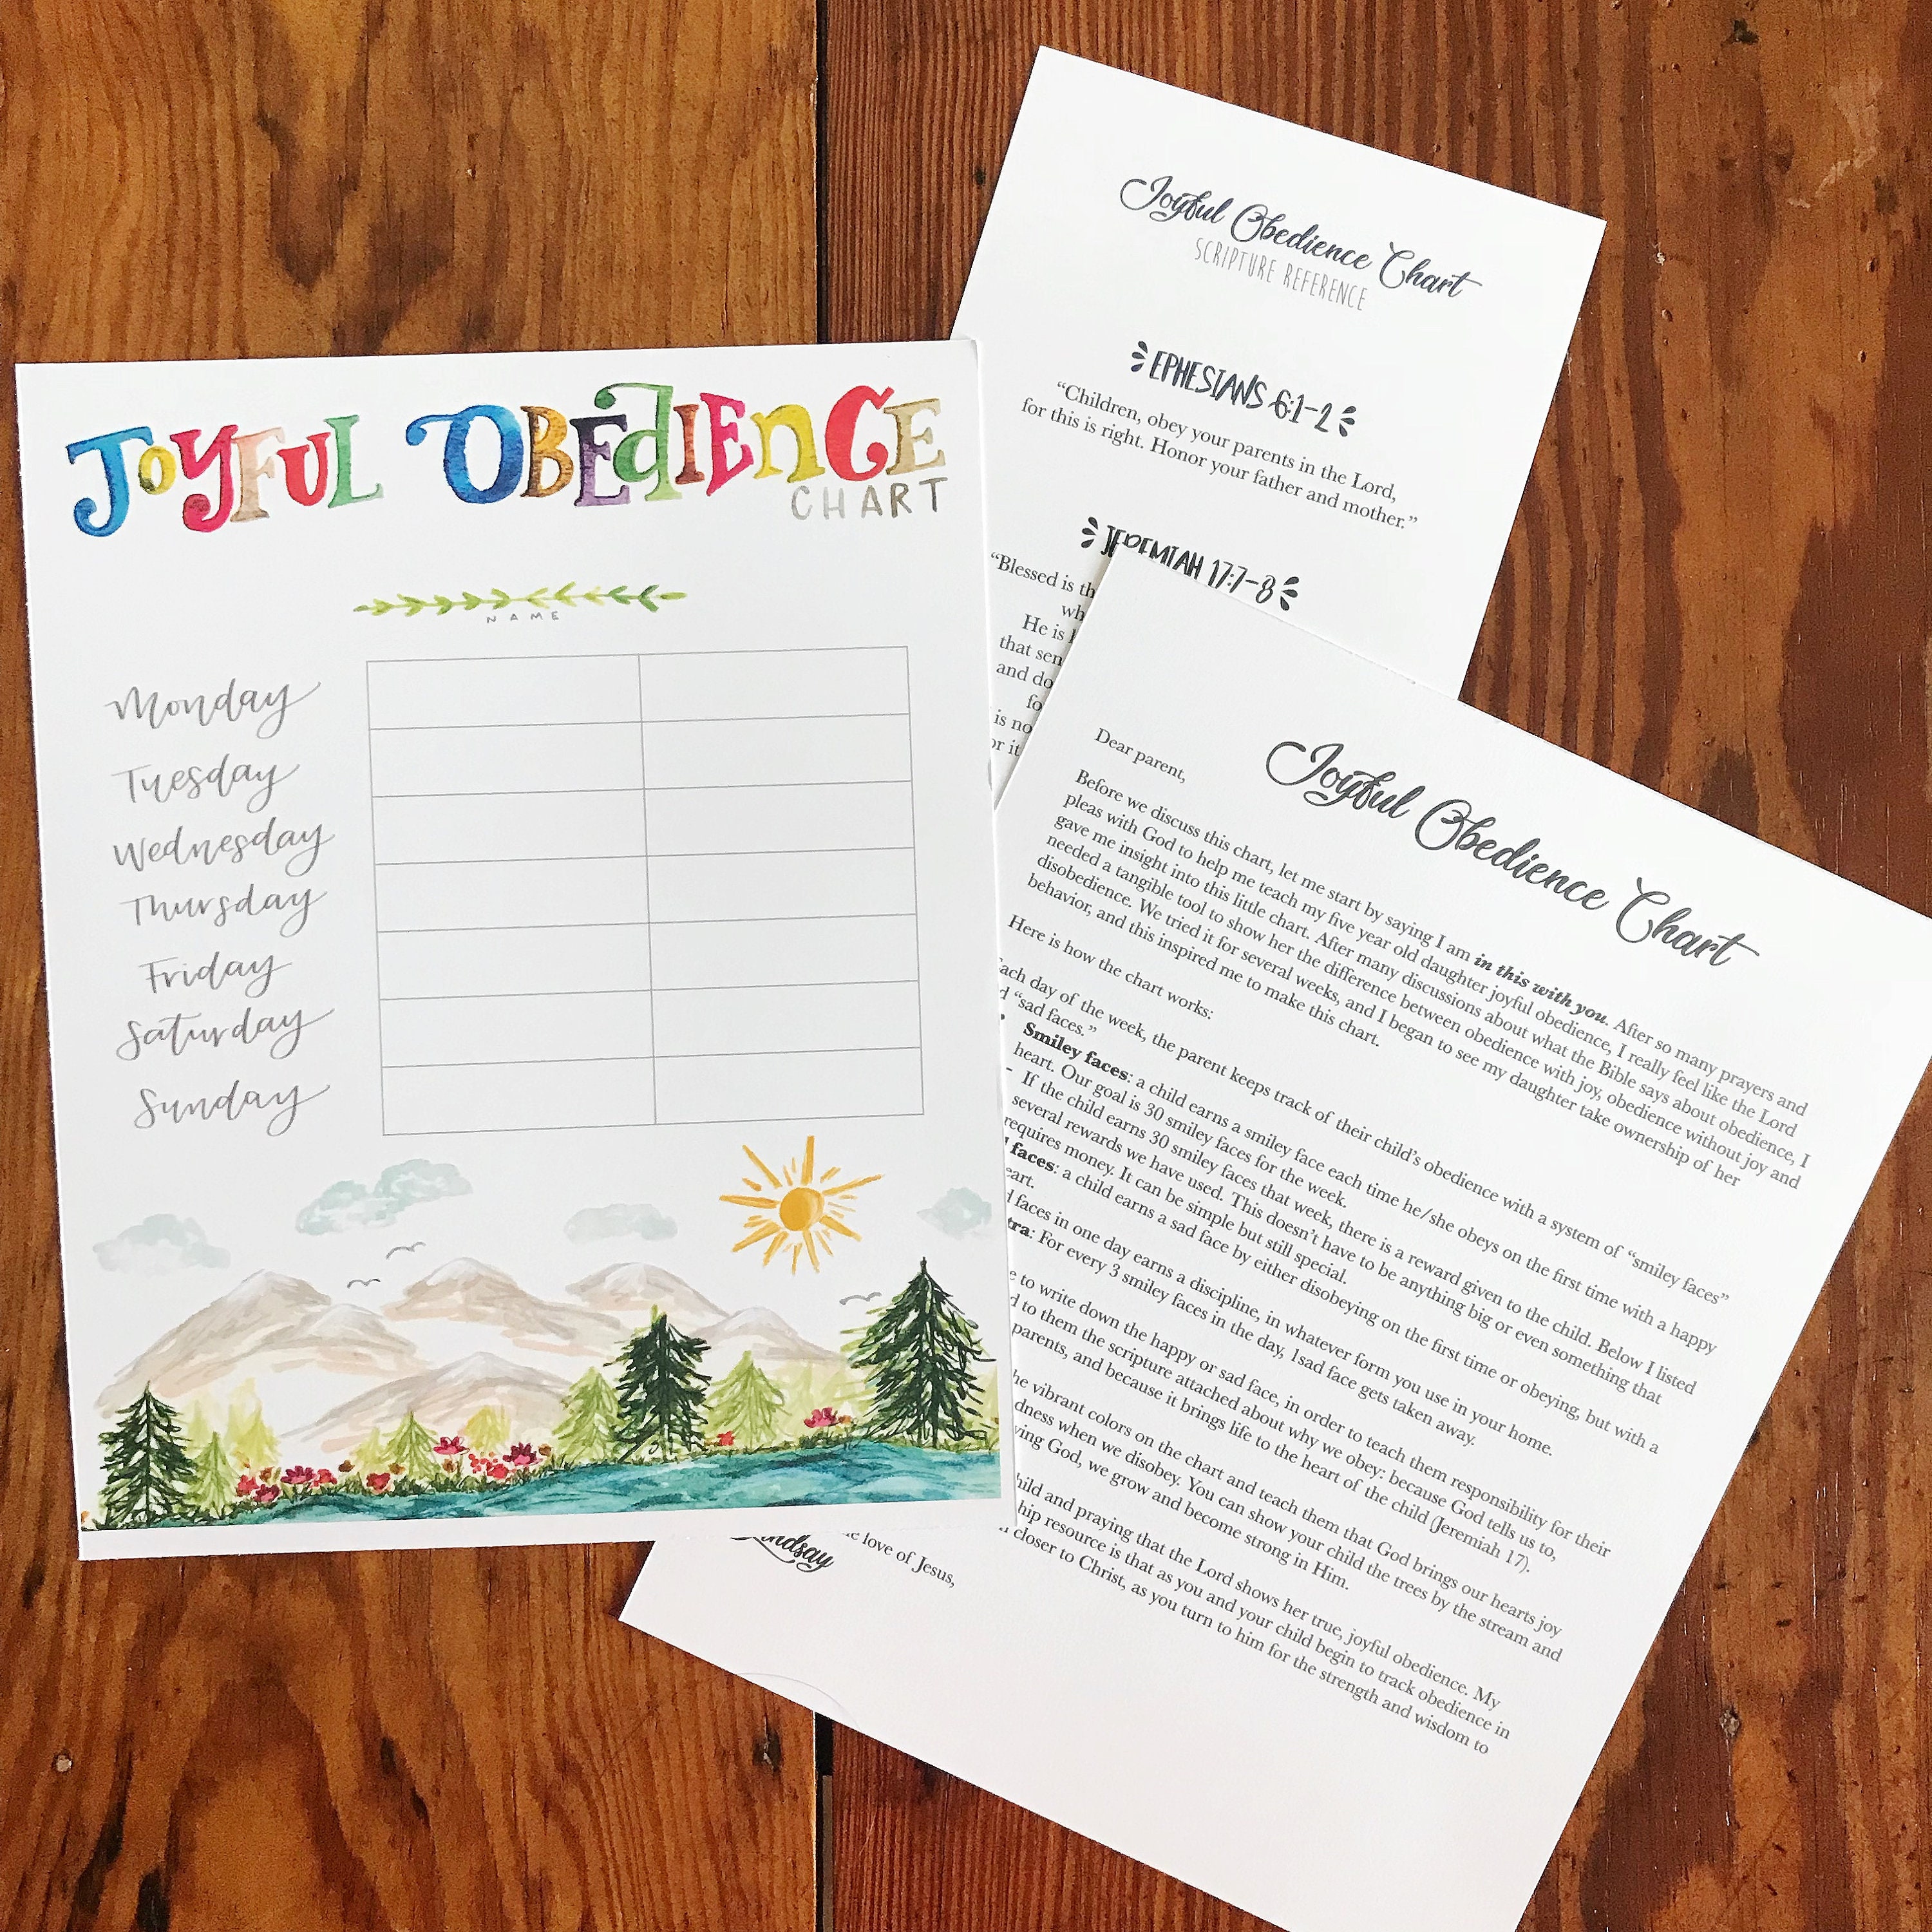 JOYFUL OBEDIENCE
CHART
NAME
Monday
Tuesday
Wednesday
Thursday
Friday
Saturday
Sunday
Joyful Obedience Chart
SCRIPTURE REFERENCE
EPHESIANS 6:1-2
“Children, obey your parents in the Lord,
for this is right. Honor your father and mother.”
JEREMIAH 17:7-8
“Blessed is
He is
that
and
is
it
Joyful Obedience Chart
Dear parent,
Before we discuss this chart, let me start by saying I am in this with you. After so many prayers and
pleas with God to help me teach my five year old daughter joyful obedience, I really feel like the Lord
gave me insight into this little chart. After many discussions about what the Bible says about obedience, I
needed a tangible tool to show her the difference between obedience with joy, obedience without joy and
disobedience. We tried it for several weeks, and I began to see my daughter take ownership of her
behavior, and this inspired me to make this chart.
Here is how the chart works:
Each day of the week, the parent keeps track of their child’s obedience with a system of “smiley faces”
“sad faces.”
Smiley faces: a child earns a smiley face each time he/she obeys on the first time with a happy
heart. Our goal is 30 smiley faces for the week.
- If the child earns 30 smiley faces that week, there is a reward given to the child. Below I listed
several rewards we have used. This doesn’t have to be anything big or even something that
requires money. It can be simple but still special.
faces: a child earns a sad face by either disobeying on the first time or obeying, but with a
faces in one day earns a discipline, in whatever form you use in your home.
For every 3 smiley faces in the day, 1sad face gets taken away.
to write down the happy or sad face, in order to teach them responsibility for their
to them the scripture attached about why we obey: because God tells us to,
parents, and because it brings life to the heart of the child (Jeremiah 17).
vibrant colors on the chart and teach them that God brings our hearts joy
when we disobey. You can show your child the trees by the stream and
God, we grow and become strong in Him.
and praying that the Lord shows her true, joyful obedience. My
resource is that as you and your child begin to track obedience in
closer to Christ, as you turn to him for the strength and wisdom to
love of Jesus,